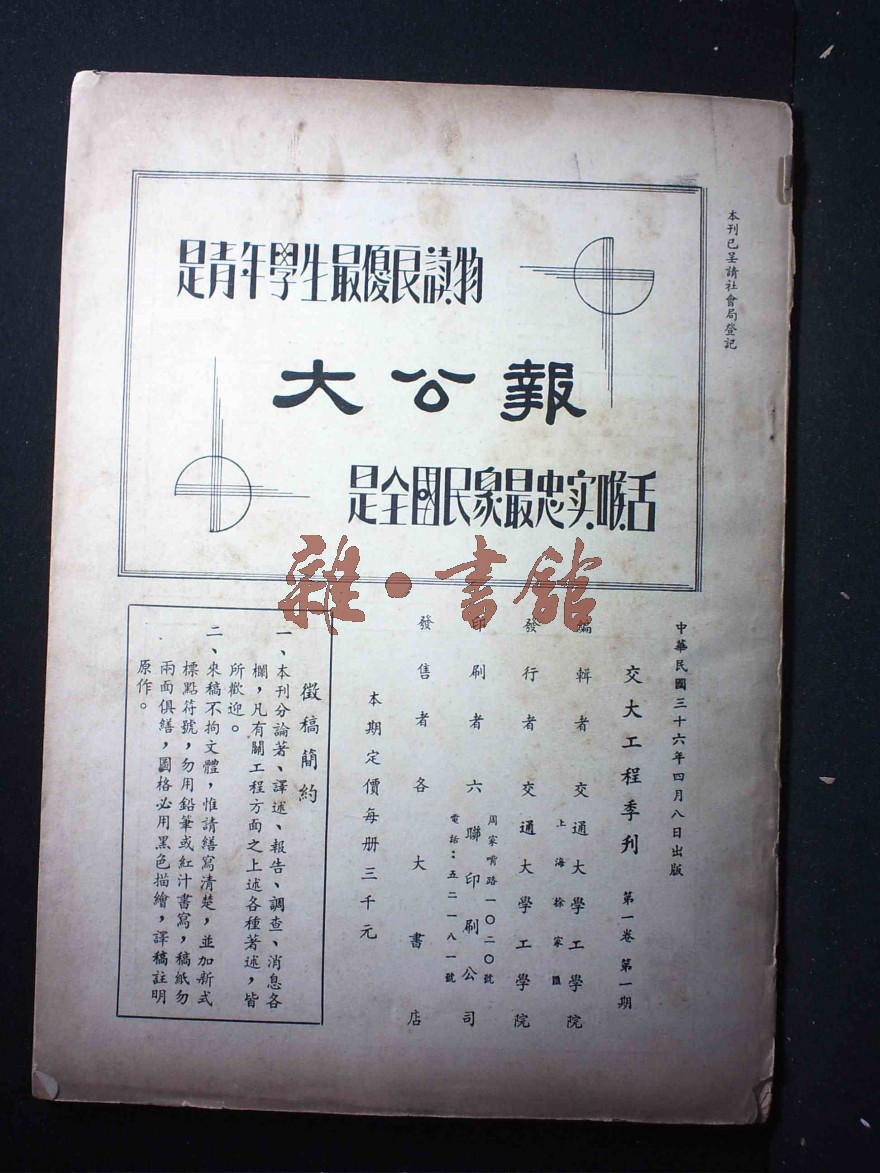 本刊已呈請社會局登記
是青年學生最優良讀物
大公報
是全國民衆最忠实喉舌
雜·書館
中華民國三十六年四月八日出版
交大工程季刊 第一卷 第一期
編輯者 交通大學工學院
上海徐家匯
發行者 交通大學工學院
印刷者 六聯印刷公司
周家嘴路一〇二〇號
電話：五二一八一號
發售者 各大書店
本期定價每册三千元
徵稿簡約
一、本刊分論著、譯述、報告、調查、消息各
欄，凡有關工程方面之上述各種著述，皆
所歡迎。
二、來稿不拘文體，惟請繕寫清楚，並加新式
標點符號，勿用鉛筆或紅汁書寫，稿紙勿
兩面俱繕，圖格必用黑色描繪，譯稿註明
原作。